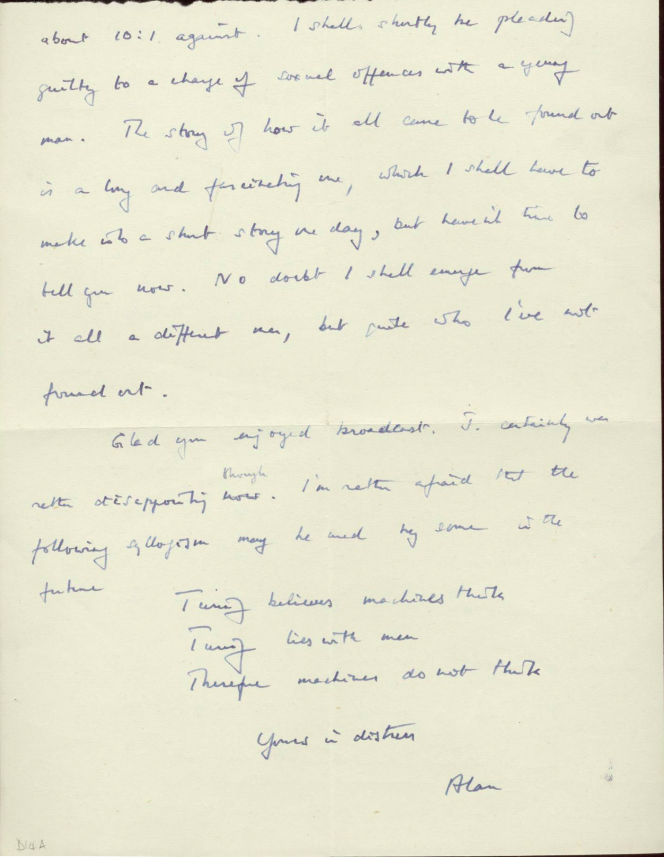 about 10:1 against. I shall shortly be pleading
guilty to a charge of sexual offences with a young
man. The story of how it all came to be found out
is a long and fascinating one, which I shall have to
make into a short story one day, but haven't time to
tell you now. No doubt I shall emerge from
it all a different man, but quite who I've not
found out.
Glad you enjoyed broadcast. J. certainly was
rather disappointing though now. I'm rather afraid that the
following syllogism may be used by some in the
future
Turing believes machines think
Turing lies with men
Therefore machines do not think
Yours in distress
Alan
D14A